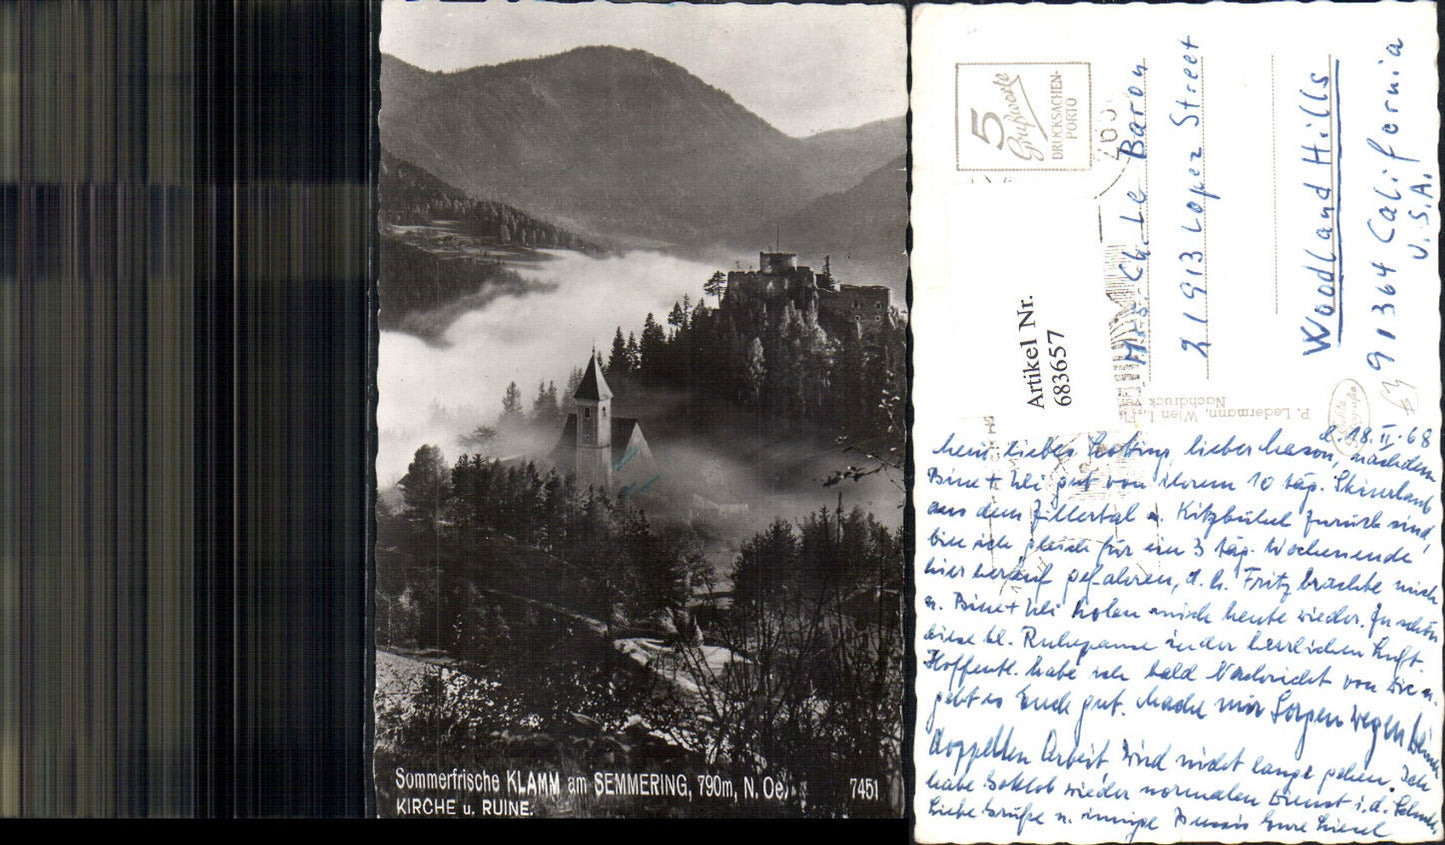 Sommerfrische KLAMM am SEMMERING, 790m, N. Oe.
7451
KIRCHE u. RUINE.
5
Grußworte
DRUCKSACHEN-
PORTO
Artikel Nr.
683657
P. Ledermann, Wien I.,
Nachdruck
Mrs. Ch. Le Baron
21913 Lopez Street
Woodland Hills
91364 California
U.S.A.
d. 18. II. 68
mein liebes, lieber, nachdem
Bine + Uli gut von ihrem 10 täg. Skiurlaub
aus dem Zillertal u. Kitzbühel zurück sind,
bin ich gleich für ein 3 täg. Wochenende
hier herauf gefahren, d. h. Fritz brachte mich
u. Bine + Uli holen mich heute wieder. Zu schön
diese kl. Ruhepause in der herrlichen Luft.
Hoffentl. habe ich bald Nachricht von Dir u.
geht es Euch gut. Mache mir Sorgen wegen Deiner
doppelten Arbeit wird nicht lange gehen. Ich
habe Gottlob wieder normalen Dienst i. d. Schule.
Liebe Grüße u. innige Bussis Eure Liesel